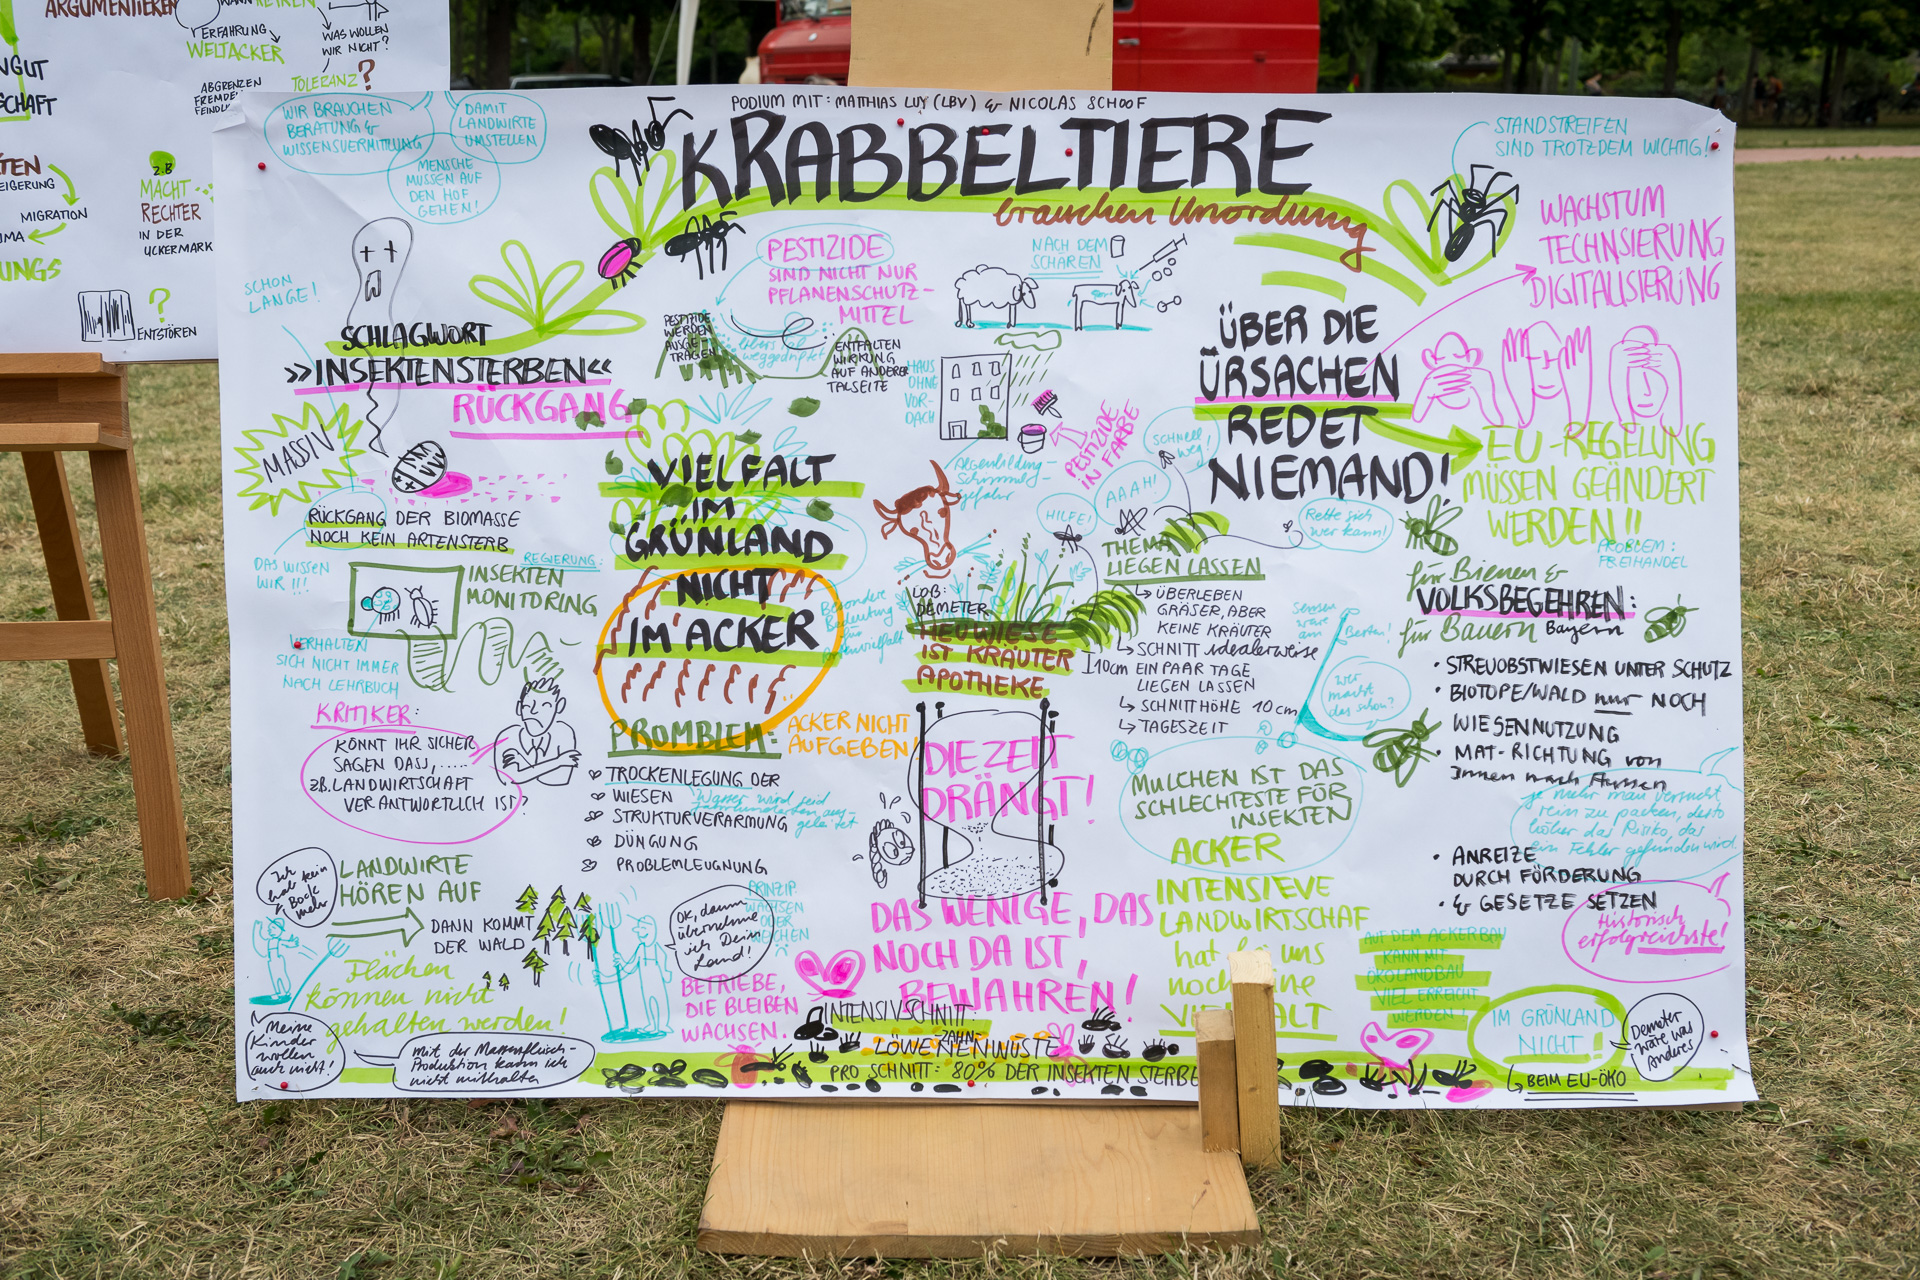 ARGUMENTIEREN
ERFAHRUNG
WELTACKER
WAS WOLLEN
WIR NICHT?
ABGRENZEN
TOLERANZ?
Z.B
MACHT
RECHTER
IN DER
UCKERMARK
MIGRATION
?
ENTSTÖREN
PODIUM MIT: MATTHIAS LUY (LBV) & NICOLAS SCHOOF
KRABBELTIERE
brauchen Unordnung
WIR BRAUCHEN
BERATUNG &
WISSENSVERMITTLUNG
DAMIT
LANDWIRTE
UMSTELLEN
MENSCHE
MÜSSEN AUF
DEN HOF
GEHEN!
STANDSTREIFEN
SIND TROTZDEM WICHTIG!
SCHON
LANGE!
SCHLAGWORT
»INSEKTENSTERBEN«
RÜCKGANG
MASSIV
RÜCKGANG DER BIOMASSE
NOCH KEIN ARTENSTERB
DAS WISSEN
WIR !!!
REGIERUNG:
INSEKTEN
MONITORING
VERHALTEN
SICH NICHT IMMER
NACH LEHRBUCH
KRITIKER:
KÖNNT IHR SICHER
SAGEN DASS, .....
z.B. LANDWIRTSCHAFT
VERANTWORTLICH IST?
Ich
hab kein
Bock
mehr
LANDWIRTE
HÖREN AUF
DANN KOMMT
DER WALD
Flächen
können nicht
gehalten werden!
Meine
Kinder
wollen
auch nicht!
Mit der Massenfleisch-
Produktion kann ich
nicht mithalten
PESTIZIDE
SIND NICHT NUR
PFLANENSCHUTZ-
MITTEL
PESTIZIDE
WERDEN
AUSGE
TRAGEN
ENTFALTEN
WIRKUNG
AUF ANDERER
TALSEITE
VIELFALT
IM
GRÜNLAND
NICHT
IM ACKER
PROMBLEM:
ACKER NICHT
AUFGEBEN!
TROCKENLEGUNG DER
WIESEN
STRUKTURVERARMUNG
DÜNGUNG
PROBLEMLEUGNUNG
OK, dann
übernehme
ich Dein
Land!
PRINZIP
WACHSEN
ODER
WEICHEN
BETRIEBE,
DIE BLEIBEN
WACHSEN.
NACH DEM
SCHAREN
HAUS
OHNE
VOR-
DACH
PESTIZIDE
IN FARBE
Algenbildung-
Schimmel-
gefahr
HILFE!
AAAH!
SCHNELL
weg!
Rette sich
wer kann!
Besondere
Bedeutung
für
Artenvielfalt
LOB:
DEMETER
HEUWIESE
IST KRÄUTER
APOTHEKE
THEMA
LIEGEN LASSEN
ÜBERLEBEN
GRÄSER, ABER
KEINE KRÄUTER
SCHNITT idealerweise
10cm EIN PAAR TAGE
LIEGEN LASSEN
SCHNITTHÖHE 10cm
TAGESZEIT
Sensen
wäre
am Besten!
Wer
macht
das schon?
DIE ZEIT
DRÄNGT!
DAS WENIGE, DAS
NOCH DA IST,
BEWAHREN!
MULCHEN IST DAS
SCHLECHTESTE FÜR
INSEKTEN
ACKER
INTENSIEVE
LANDWIRTSCHAF
hat bei uns
noch eine
VIELFALT
INTENSIVSCHNITT:
LÖWENZAHNENWÜSTE
PRO SCHNITT: 80% DER INSEKTEN STERBE
ÜBER DIE
ÜRSACHEN
REDET
NIEMAND!
WACHSTUM
TECHNSIERUNG
DIGITALISIERUNG
EU-REGELUNG
MÜSSEN GEÄNDERT
WERDEN!!
PROBLEM:
FREIHANDEL
für Bienen &
VOLKSBEGEHREN:
für Bauern Bayern
• STREUOBSTWIESEN UNTER SCHUTZ
• BIOTOPE/WALD nur NOCH
WIESENNUTZUNG
• MAT-RICHTUNG von
Innen nach Aussen
je mehr man versucht
rein zu packen, desto
höher das Risiko, das
ein Fehler gefunden wird.
• ANREIZE
DURCH FÖRDERUNG
• & GESETZE SETZEN
Historisch
erfolgreichste!
AUF DEM ACKERBAU
KANN MIT
ÖKOLANDBAU
VIEL ERREICHT
WERDEN!
IM GRÜNLAND
NICHT!
BEIM EU-ÖKO
Demeter
wäre was
Anderes